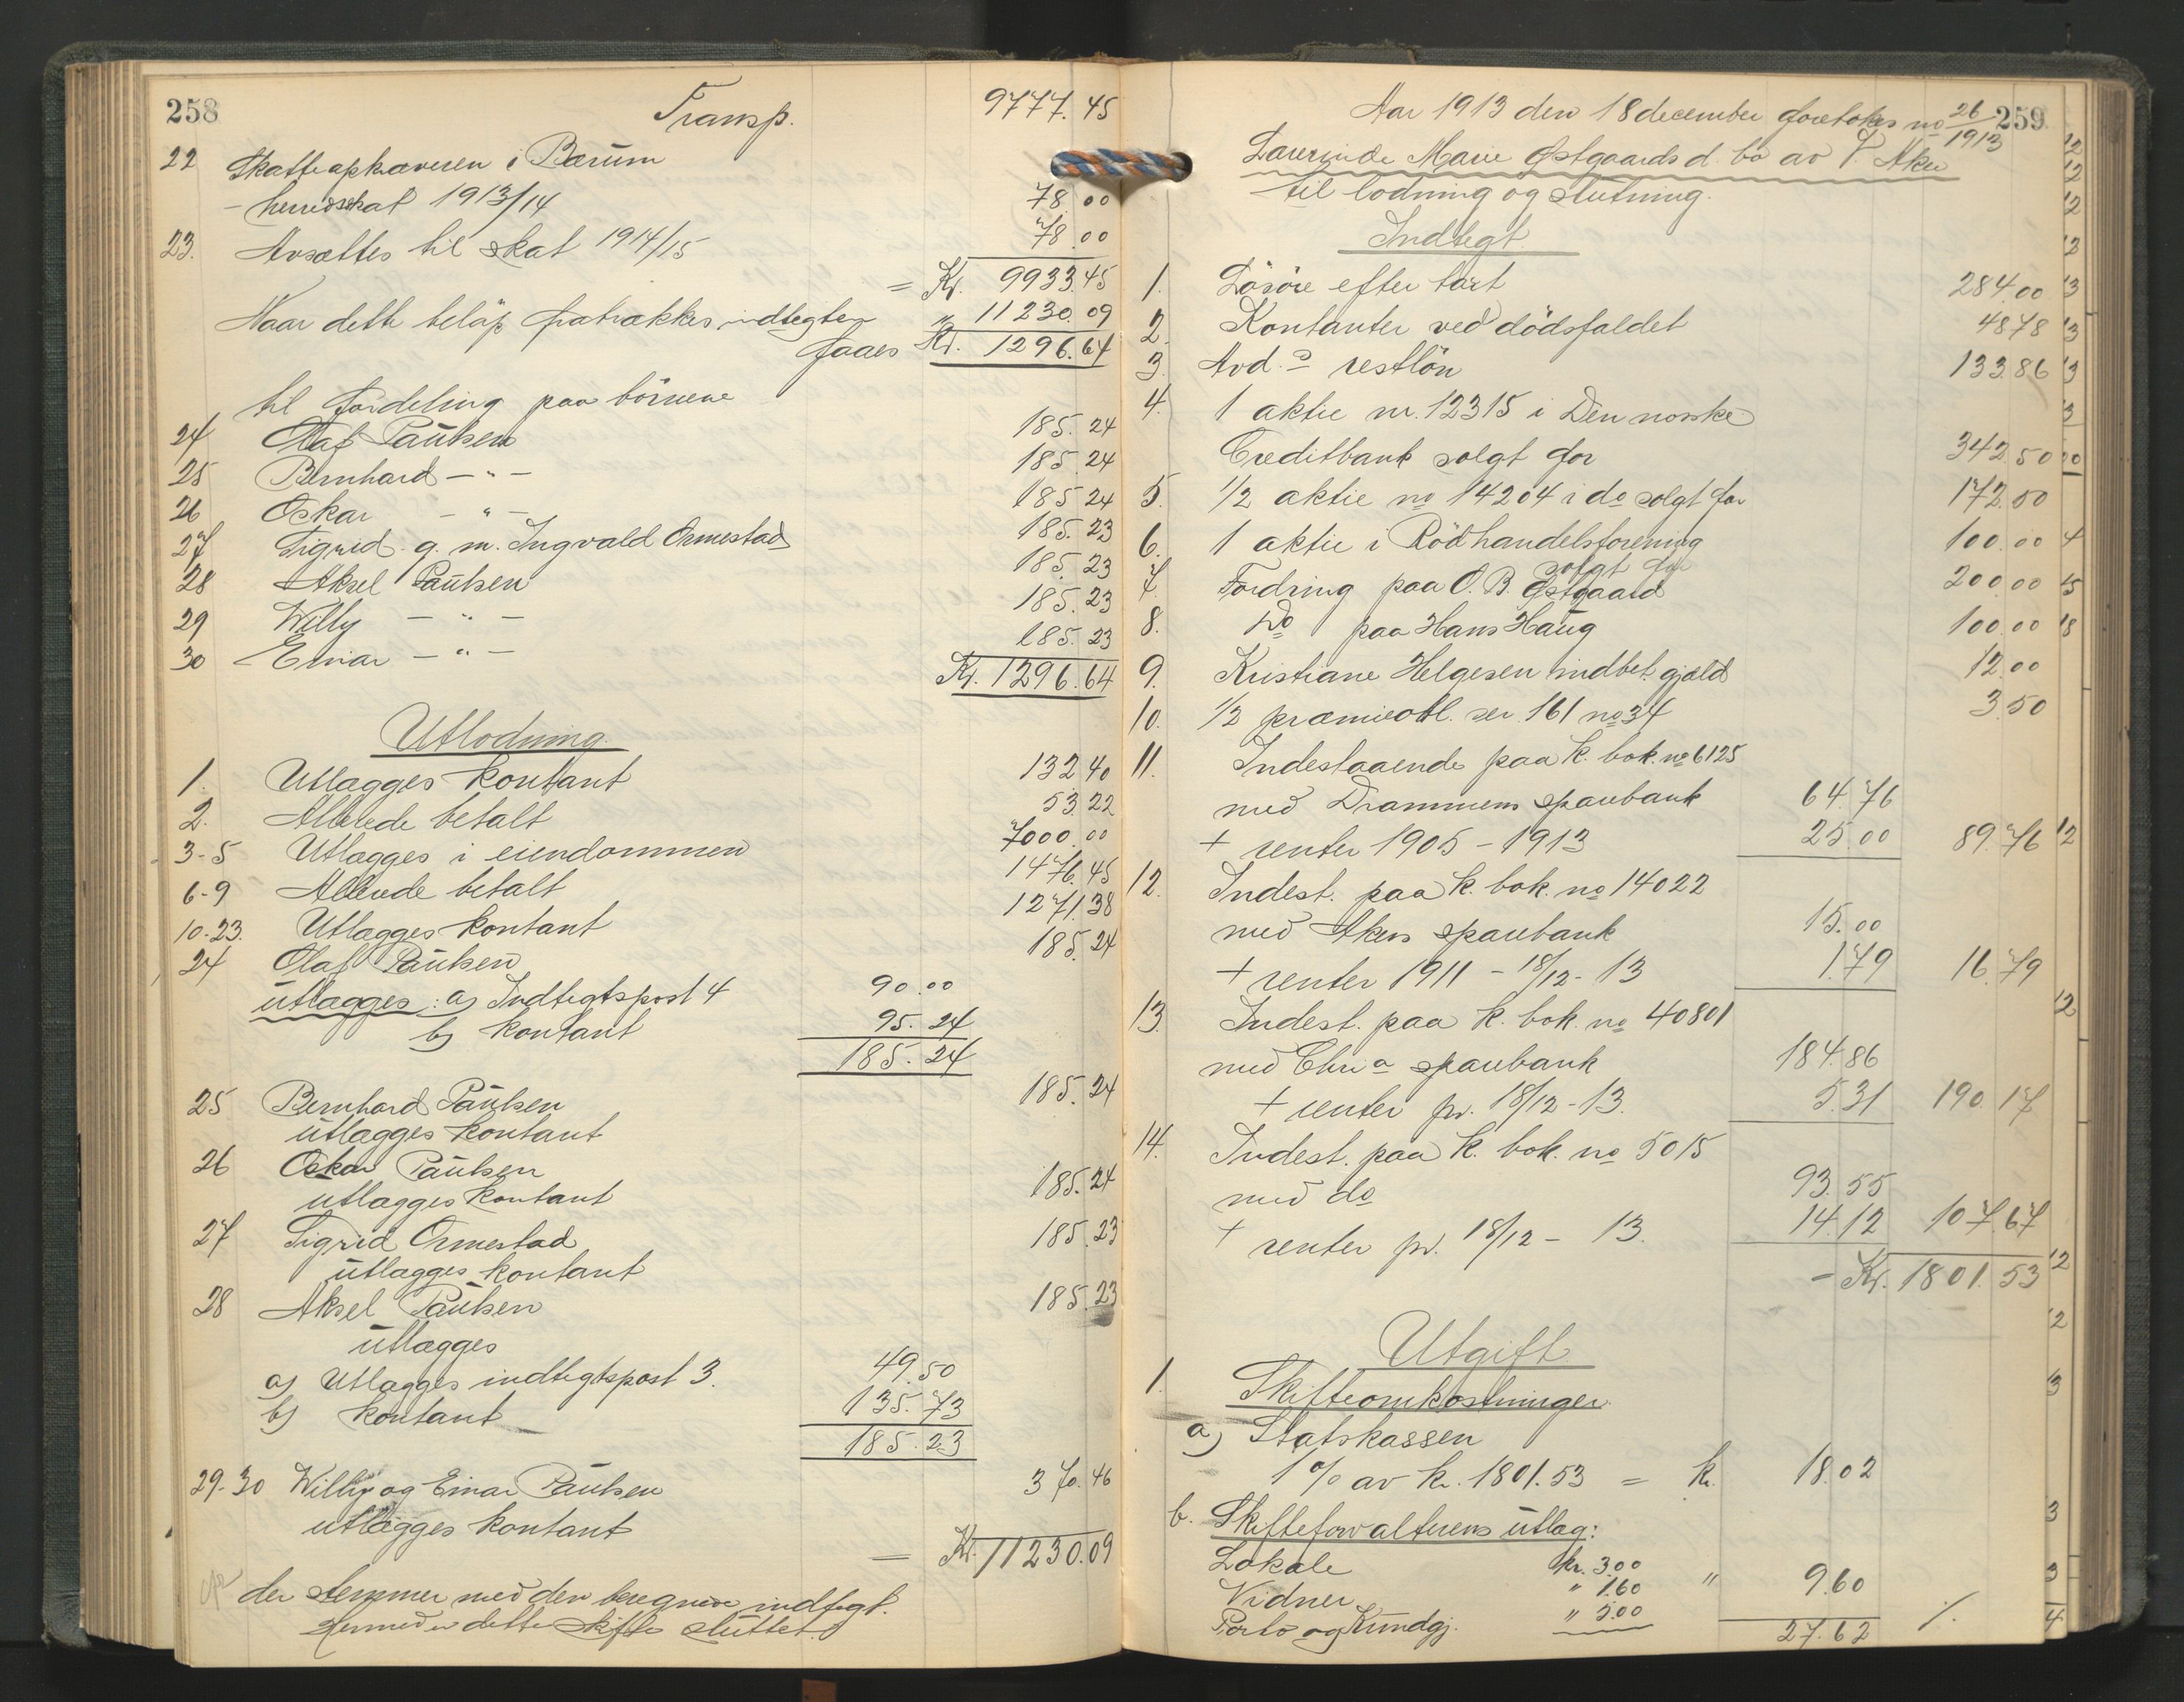 258
Transp. 9777.45
22 Skatteopkræveren i Bærum
- herredsskat 1913/14 78.00
23. Avsættes til skat 1914/15 78.00
= Kr. 9933.45
Naar dette beløp fratrækkes indtegten " 11230.09
faaes Kr. 1296.64
til fordeling paa börnene
24 Olaf Paulsen 185.24
25 Bernhard - " - 185.24
26 Oskar - " - 185.24
27 Sigrid g. m. Ingvald Ormestad 185.23
28 Aksel Paulsen 185.23
29 Willy - " - 185.23
30 Einar - " - 185.23
Kr. 1296.64
Utlodning.
1. Utlægges kontant 132.40
2. Allerede betalt 53.22
3-5 Utlægges i eiendommen 7000.00
6-9 Allerede betalt 1476.45
10-23. Utlægges kontant 1271.38
24 Olaf Paulsen 185.24
utlægges: a) Indtegtspost 4 90.00
b) kontant 95.24
185.24
25 Bernhard Paulsen 185.24
utlægges kontant
26 Oskar Paulsen 185.24
utlægges kontant
27 Sigrid Ormestad 185.23
utlægges kontant
28 Aksel Paulsen 185.23
utlægges
a) Utlægges indtegtspost 3. 49.50
b) kontant 135.73
185.23
29-30 Willy og Einar Paulsen 370.46
utlægges kontant
= Kr. 11230.09
der stemmer med den beregnede indtegt.
Hermed er dette skifte sluttet.
259
Aar 1913 den 18 december foretokes no 26/1913
Laurinde Marie Østgaards d. bo av V. Aker
til lodning og slutning.
Indtegt
1. Lösöre efter takst 284.00
2. Kontanter ved dödsfaldet 48.78
3. Avd.s restlön 133.86
4. 1 aktie nr. 12315 i Den norske
Creditbank solgt for 342.50
5. 1/2 aktie no 14204 i do solgt for 172.50
6. 1 aktie i Röd handelsforening 100.00
solgt for
7. Fordring paa O. B. Østgaard 200.00
8. Do paa Hans Haug 100.00
9. Kristiane Helgesen indbet. gjæld 12.00
10. 1/2 præmieobl. ser. 161 no 34 3.50
11. Indestaaende paa k. bok. no 6125
med Drammens sparebank 64.76
+ renter 1905 - 1913 25.00 89.76
12. Indest. paa k. bok. no 14022
med Akers sparebank 15.00
+ renter 1911 - 18/12 - 13 1.79 16.79
13. Indest. paa k. bok. no 40801
med Chria sparebank 184.86
+ renter pr. 18/12 - 13. 5.31 190.17
14. Indest. paa k. bok. no 5015
med do 93.55
+ renter pr. 18/12 - 13. 14.12 107.67
- Kr. 1801.53
Utgift
1. Skifteomkostninger
a) Statskassen
1 % av kr. 1801.53 = k. 18.02
b. Skifteforvalterens utlæg:
Lokale kr. 3.00
Vidner " 1.60 " 9.60
Porto og Kundgj. " 5.00
27.62 ./.